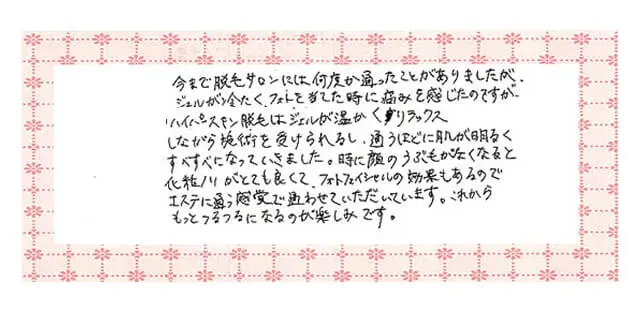 今まで脱毛サロンには何度か通ったことがありましたが、
ジェルが冷たく、フォトを当てた時に痛みを感じたのですが、
ハイパースキン脱毛はジェルが温かくリラックス
しながら施術を受けられるし、通うほどに肌が明るく
すべすべになっていきました。時に顔のうぶ毛がなくなると
化粧ノリがとても良くて、フォトフェイシャルの効果もあるので
エステに通う感覚で通わせていただいています。これから
もっとつるつるになるのが楽しみです。